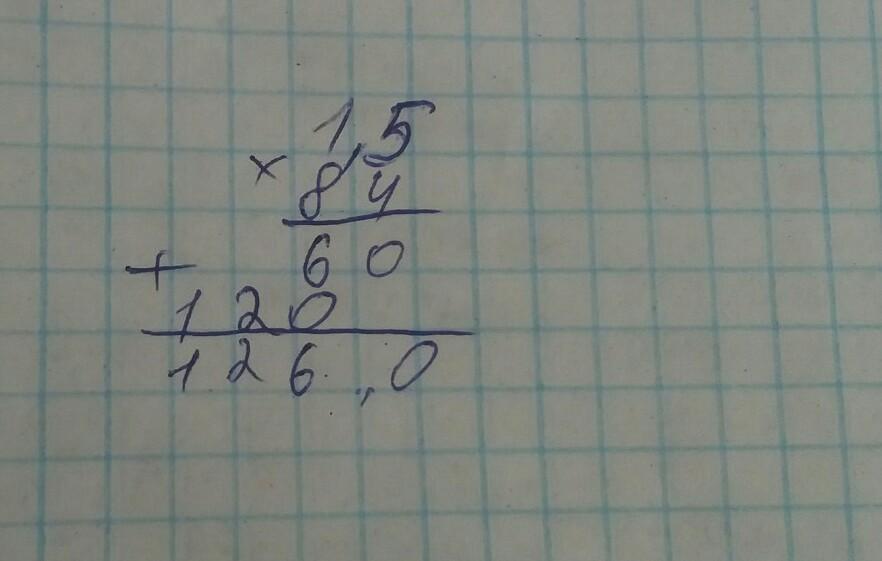 1,5
× 84
+ 60
120
126,0